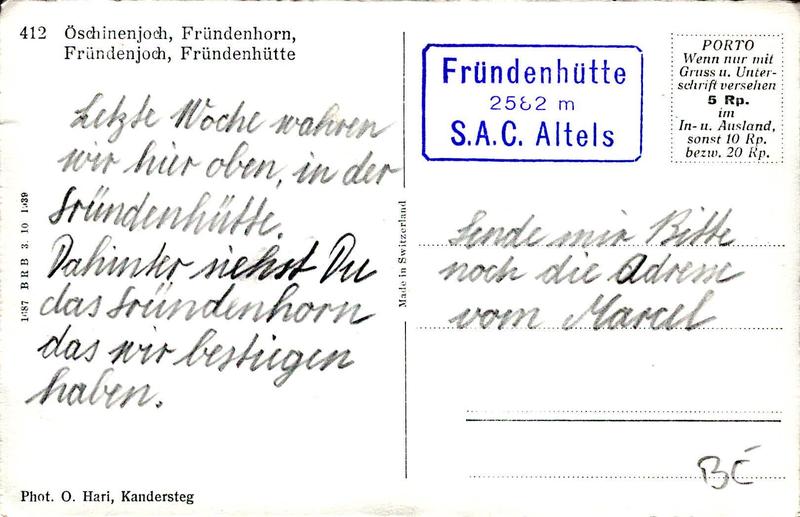 412 Öschinenjoch, Fründenhorn,
Fründenjoch, Fründenhütte
Letzte Woche wahren
wir hier oben, in der
Fründenhütte.
Dahinter siehst Du
das Fründenhorn
das wir bestiegen
haben.
Phot. O. Hari, Kandersteg
BRB 3. 10 1939
Made in Switzerland
Fründenhütte
2562 m
S.A.C. Altels
PORTO
Wenn nur mit
Gruss u. Unter-
schrift versehen
5 Rp.
im
In- u. Ausland,
sonst 10 Rp.
bezw. 20 Rp.
Sende mir Bitte
noch die Adresse
vom Marcel
BE